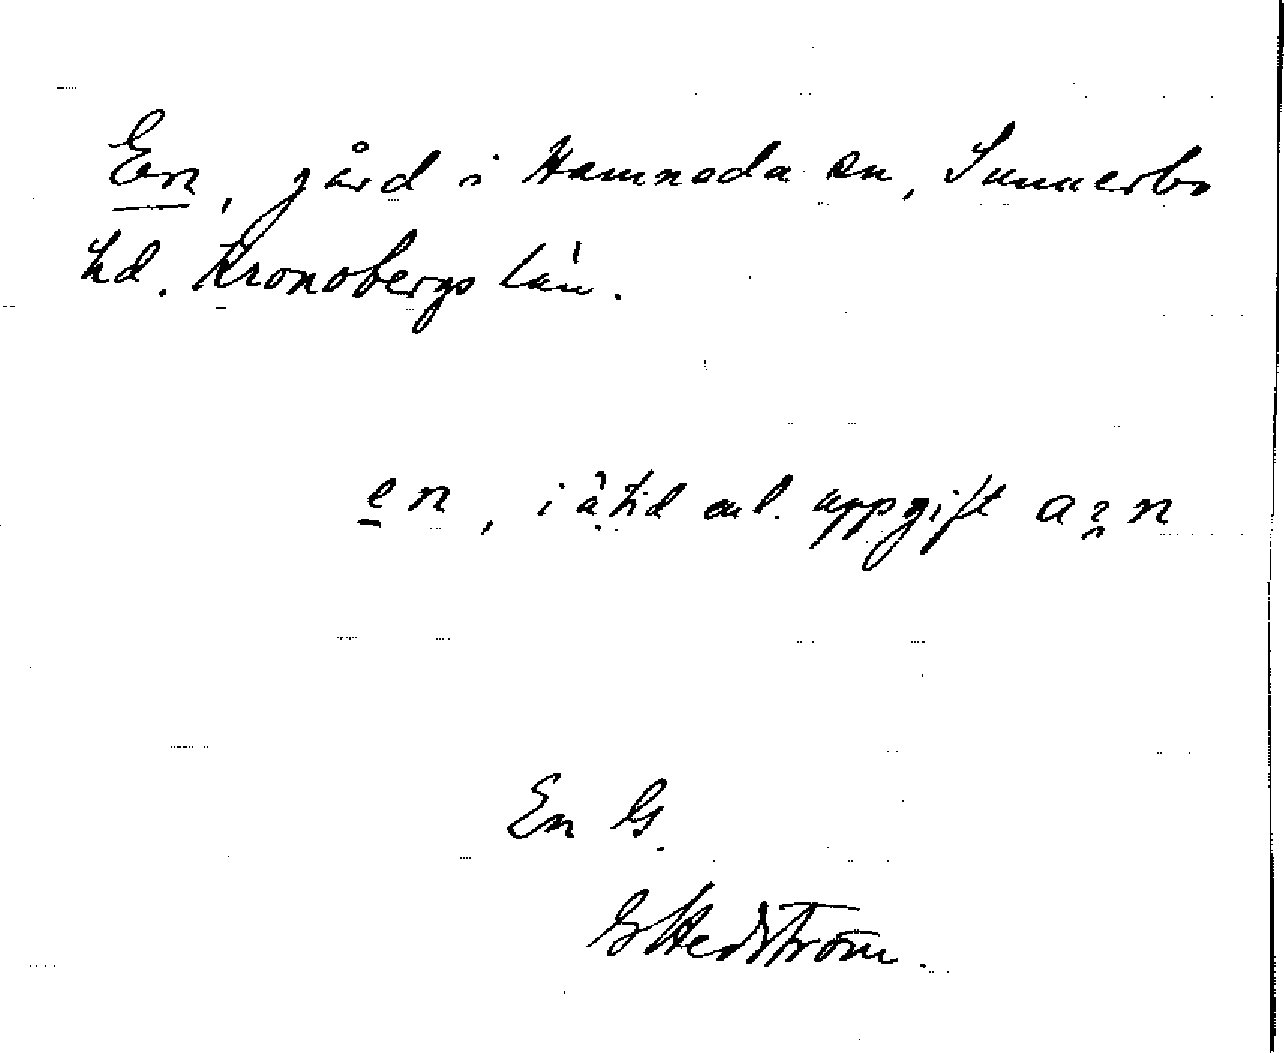 En, gård i Hamneda sn, Sunnerbo
hd. Kronobergs län.
en, i ä. tid enl. uppgift aen
En G.
G Hedström.